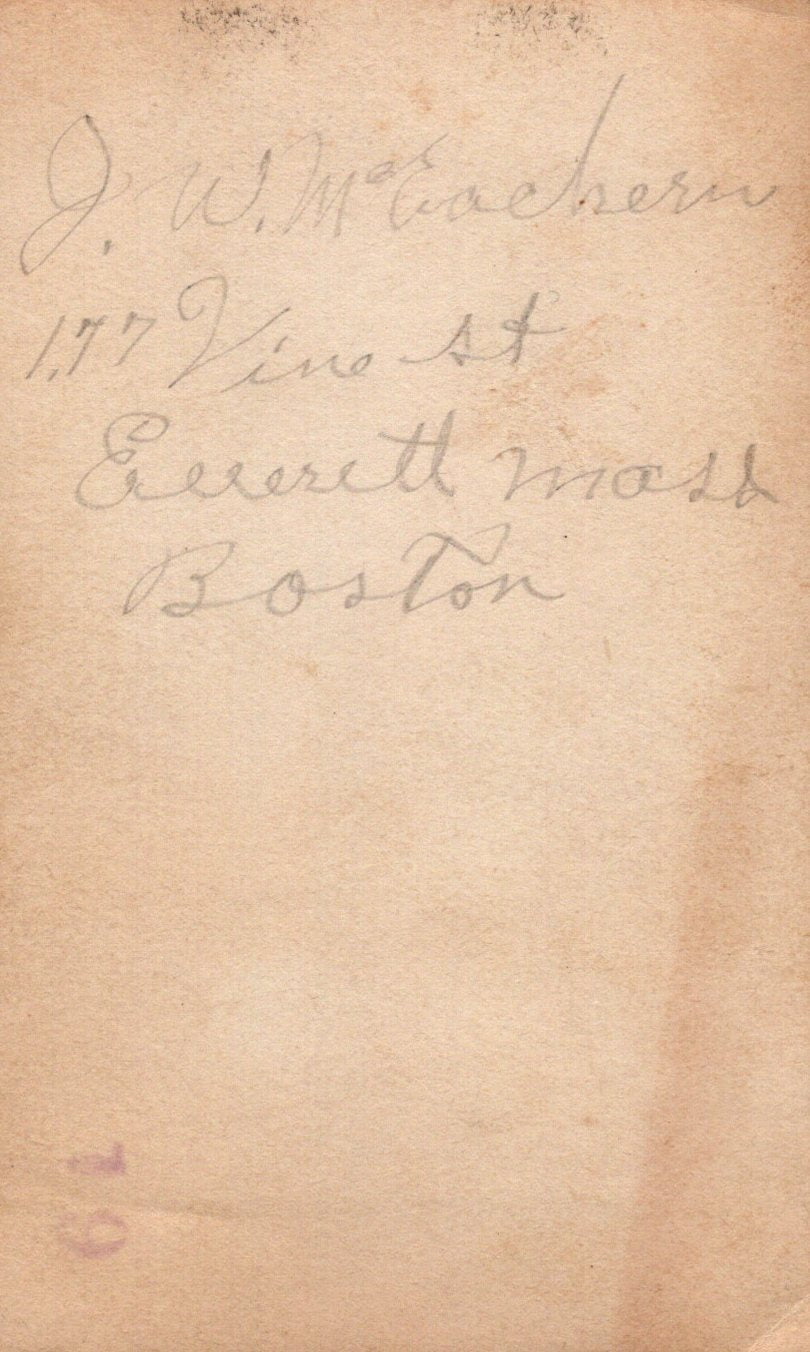 J. W. McEachern
177 Vine st
Everett Mass
Boston
61